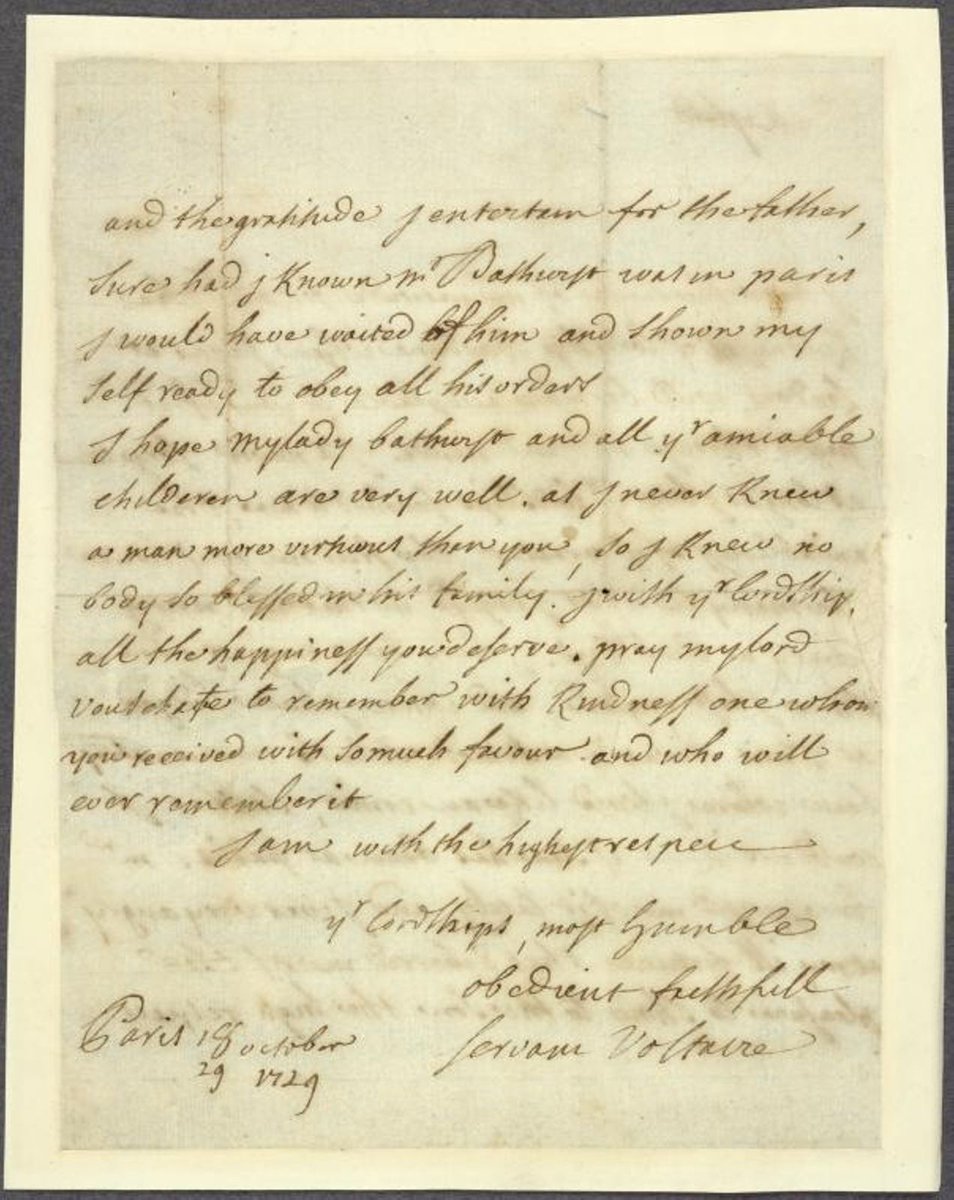 and the gratitude j entertain for the father,
sure had j Known Mr Bathurst was in paris
j would have waited of him and shown my
self ready to obey all his orders
j hope Mylady bathurst and all yr amiable
childeren are very well. as j never Knew
a man more virtuous then you, so j Knew no
body so blessed in his family. j wish yr lordship,
all the happiness you deserve. pray mylord
voutchafe to remember with Kindness one whom
you received with so much favour and who will
ever remember it
j am with the highest respect
yr lordships, most humble
obedient faithfull
servant Voltaire
Paris 18 october
29 1729